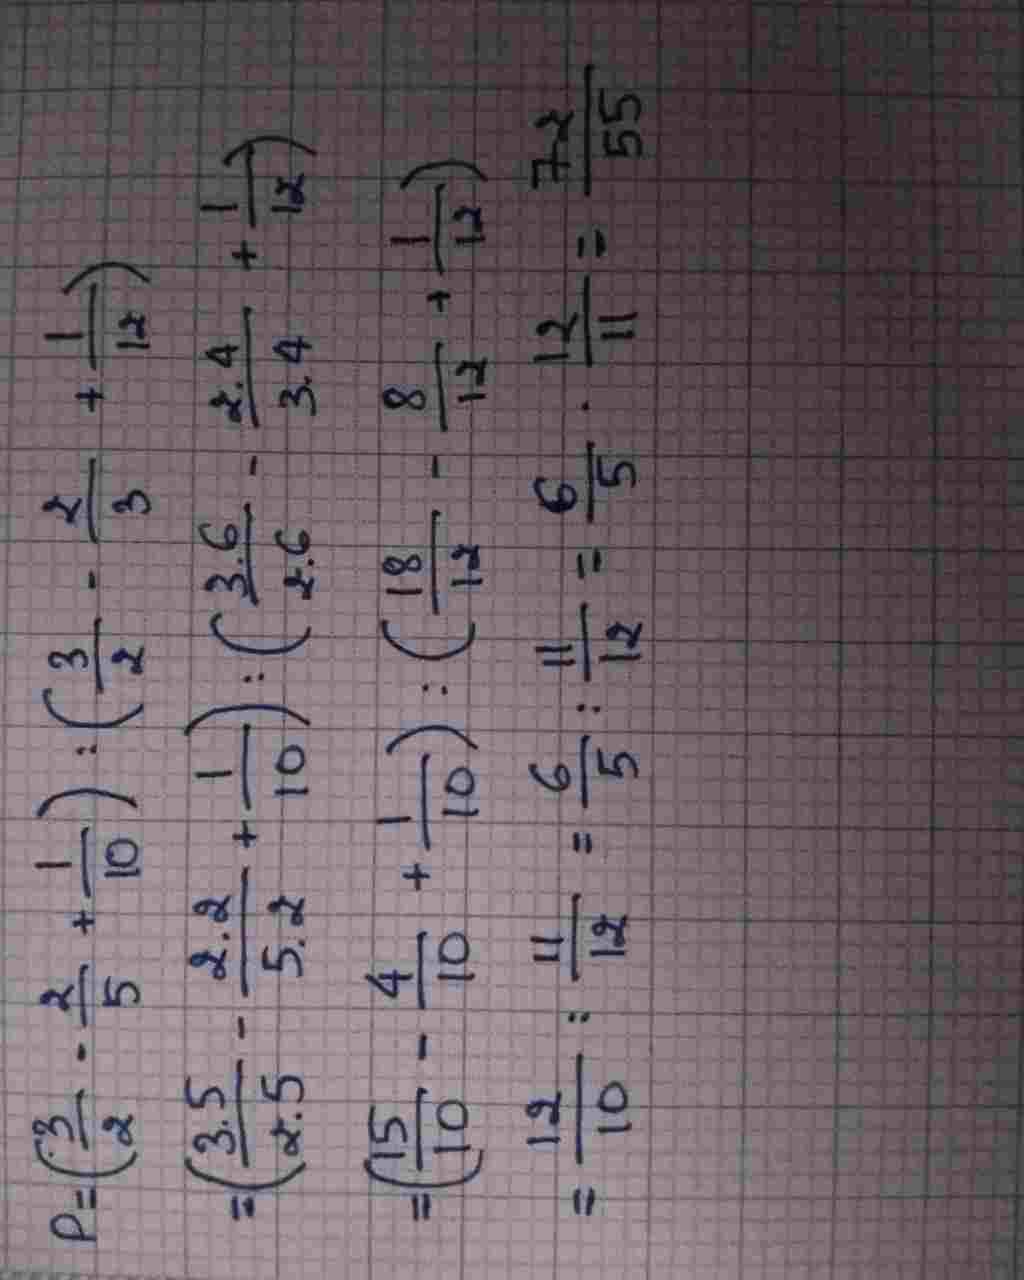 P = (3/2 - 2/5 + 1/10) : (3/2 - 2/3 + 1/12)
= (3.5/2.5 - 2.2/5.2 + 1/10) : (3.6/2.6 - 2.4/3.4 + 1/12)
= (15/10 - 4/10 + 1/10) : (18/12 - 8/12 + 1/12)
= 12/10 : 11/12 = 6/5 : 11/12 = 6/5 . 12/11 = 72/55